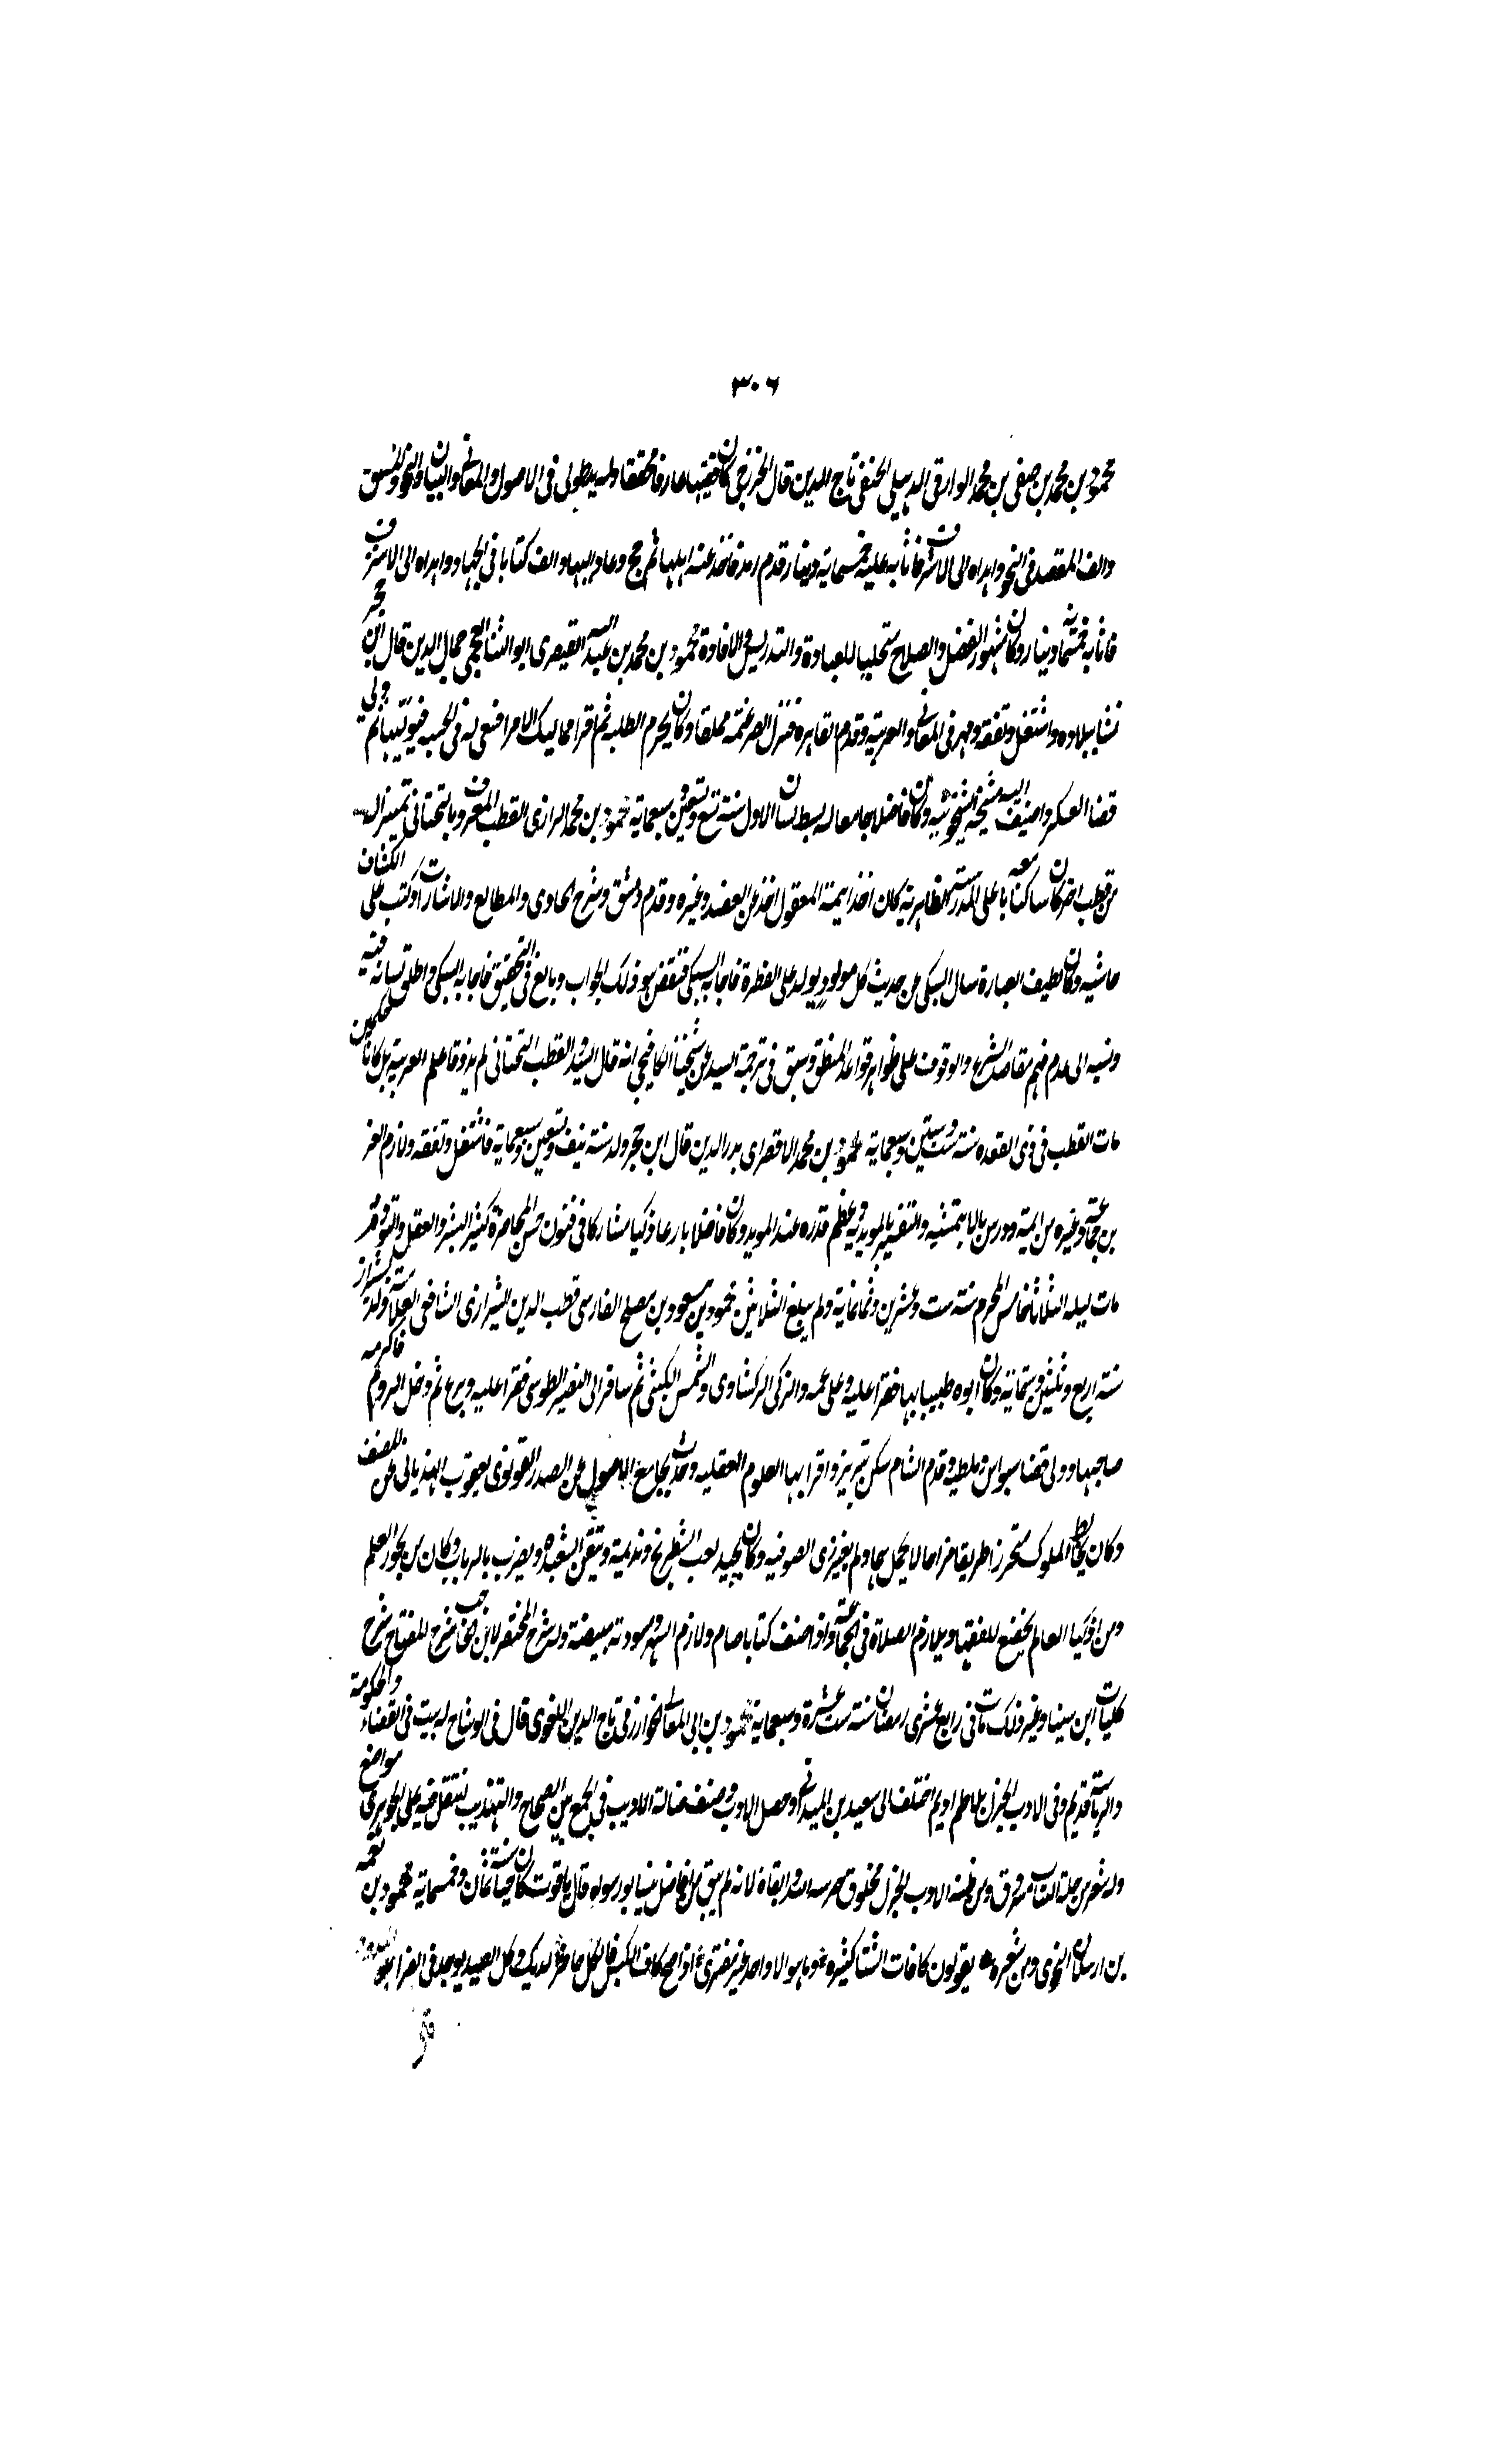 ٣٠٦
محمود بن محمد بن صفى بن محمد الوارقى الدهلى الحنفى تاج الدين قال الخزرجى كان فقيها عارفا محققا وله يد طولى فى الاصول والمعانى والبيان والنحو والمنسق
والف المقصد فى النحو واهداه الى الاشرف فاثابه عليه خمسماية دينار قدم فاخذ عنه اهلها ثم حج وعاد اليها والف كتابا فى الجهاد واهداه الى الاشرف
فاثابه خمسمائة دينار وكان مشهور الفضل والصلاح للعبادة والتدريس والافادة محمود بن محمد بن عبد الله القيصرى ابو الثنا العجمى جمال الدين قال ابن حجر
نشا ببلاده واشتغل وتفقه ومهر فى المعانى والعربية وقدم القاهرة فنزل الصرغتمشية مملقا وكان يخرم الطلبه ثم اقرا مماليك الامرا فسعى له فى الحسبه فوليها ثم ولى
قضا العسكر واضيف اليه مشيخة الشيخونية وكان فاضلا جامعا له بسطة لسان الاول سنة تسع وتسعين وسبعماية محمود بن محمد الرازى القطب المعروف بالتحتانى تمييزا له
من قطب اخر كان ساكنا معه باعلى المدرسة الظاهرية كان احد ايمة المعقول اخذ عن العضد وغيره وقدم دمشق وشرح الحاوى والمطالع والاشارات وكتب على الكشاف
حاشيه وكان لطيف العبارة سال السبكى عن حديث كل مولود يولد على الفطرة فاجابه السبكى فنقض هو ذلك الجواب وبالغ فى التحقيق فاجابه السبكى واطلق لسانه فيه
ونسبه الى عدم فهم مقاصد الشرع والوقوف على ظواهر قواعد المنطق وسبق فى ترجمة السيد عن شيخنا الكافيجى انه قال السيد والقطب التحتانى لم يذوقا علم العربية بل كانا حكيمين
مات القطب فى ذى القعده سنة ست وستين وسبعماية محمود بن محمد الاقصراى بدر الدين قال ابن حجر ولد سنة نيف وتسعين وسبعماية فاشتغل وتفقه ولازم العز
بن جماعة وغيره من ايمة ودرس بالايتمشيه والتفسير بالمويديه وعظم قدره عند المويد وكان فاضلا بارعا ذكيا مشاركا فى فنون حسن المحاضرة كثير البشر والعقل والتودد وقر
مات ليله الثلاثا خامس المحرم سنة ست وعشرين وثمانماية ولم يبلغ الثلاثين محمود بن مسعود بن مصلح الفارسى قطب الدين الشيرازى الشافعى العلامة ولد بشيراز
سنة اربع وثلثين وستماية وكان ابوه طبيبا بها فقرا عليه وعلى عمه والزكى البركشاوى والشمس الكبشى ثم سافر الى النصير الطوسى فقرا عليه وبرع ثم دخل الروم فاكرمه
صاحبها وولى قضا سيواس وملطيه وقدم الشام سكن تبريز واقرا بها العلوم العقليه وحدث بجامع الاصول عن الصدر القونوى يعقوب الهذبانى عن المصنف
وكان يخالط الملوك متحرزا ظريفا مزاحا لا يحمل هما ولم يغير زى الصوفيه وكان يجيد لعب الشطرنج ويديمه ويتقن الشعبذه ويضرب بالرباب وكان من بحور العلم
ومن اذكيا العالم يخضع للفقها ويلازم الصلاة فى الجماعة واذا صنف كتابا صام ولازم السهر ومسودته مبيضة وله شرح المختصر لابن الحاجب شرح المفتاح شرح
كليات ابن سينا وغير ذلك مات فى رابع عشرى رمضان سنة ست عشرة وسبعماية محمود بن ابى المعالى الخوارزمى تاج الدين اللغوى قال فى الوشاح له بيت فى القضاء والحكومة
والرياسة قديم وفى الادب الجزل اختلف الى سعيد بن الميدانى وحصل الادب وصنف ضالة الاديب فى الجمع بين الصحاح والتهذيب ينتقل فيه على الجوهرى مواضع
وله شعر من خلق لانه لم يبق من افاضل نيسابور سواه قال ياقوت كان حيا سنة ثمان وخمسماية محمود بن نعمه
بن ارسلان النحوى ومن شعره يقولون كافات الشتا كثيرة وما هو الا واحد غير مفترى اذا صح كاف الكيس فالكل حاضر لديك وكل الصيد يوجد فى الفرا